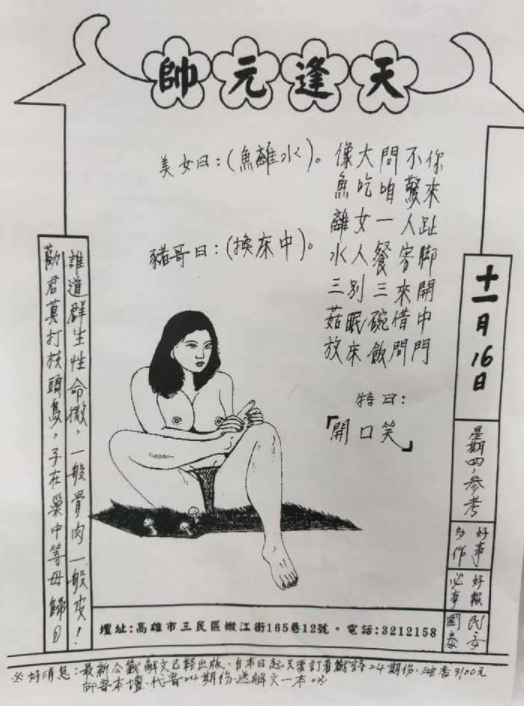 天逢元帥
十一月16日
星期四.參考
好事多作
好報必享
民安國泰
你來趾脚開中門
不驚人客來借問
問咱一餐三碗飯
大吃女人別眠床
像魚離水三菇放
美女曰：(魚離水)。
豬哥曰：(換床中)。
特曰：
「開口笑」
誰道群生性命微，一般骨肉一般皮！
勸君莫打枝頭鳥，子在巢中等母歸日
壇址:高雄市三民區嫩江街165巷12號。電話:3212158
※好消息：最新公籤解文已經出版、自本日起只要訂看獻詩24期份、油香3100元
本壇、代寄24期份送解文一本